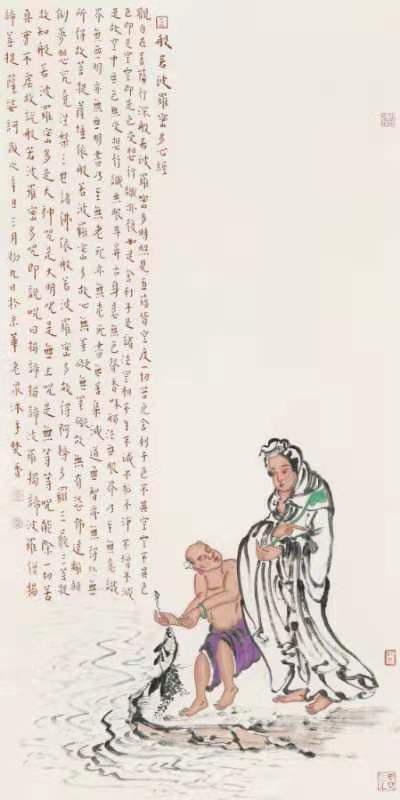 般若波羅密多心經
觀自在菩薩行深般若波羅密多時照見五蘊皆空度一切苦厄舍利子色不異空空不異色
色即是空空即是色受想行識亦復如是舍利子是諸法空相不生不滅不垢不淨不增不減
是故空中無色無受想行識無眼耳鼻舌身意無色聲香味觸法無眼界乃至無意識
界無無明亦無無明盡乃至無老死亦無老死盡無苦集滅道無智亦無得以無
所得故菩提薩埵依般若波羅密多故心無罣礙無罣礙故無有恐怖遠離顛
倒夢想究竟涅槃三世諸佛依般若波羅密多故得阿耨多羅三藐三菩提
故知般若波羅密多是大神咒是大明咒是無上咒是無等等咒能除一切苦
真實不虛故說般若波羅密多咒即說咒曰揭諦揭諦波羅揭諦波羅僧揭
諦菩提薩婆訶歲次辛丑三月初九日於京華老泉沐手焚香